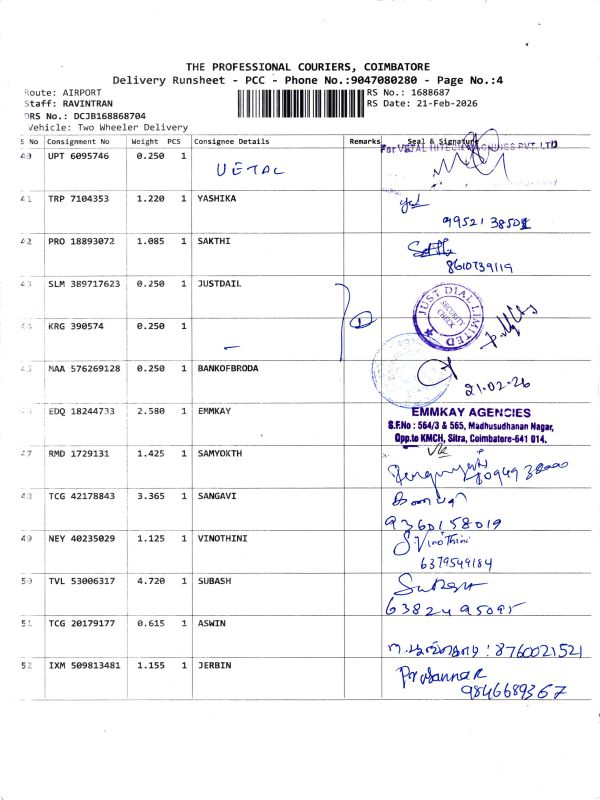 THE PROFESSIONAL COURIERS, COIMBATORE
Delivery Runsheet - PCC - Phone No.:9047080280 - Page No.:4
Route: AIRPORT
Staff: RAVINTRAN
DRS No.: DCJB168868704
Vehicle: Two Wheeler Delivery
RS No.: 1688687
RS Date: 21-Feb-2026
S No Consignment No Weight PCS Consignee Details Remarks Seal & Signature
For VETAL HITECH PVT. LTD
40 UPT 6095746 0.250 1 VETAL
41 TRP 7104353 1.220 1 YASHIKA
42 PRO 18893072 1.085 1 SAKTHI
8610739119
43 SLM 389717623 0.250 1 JUSTDAIL
JUST DIAL LIMITED
SECURITY CHECK
KRG 390574 0.250 1
MAA 576269128 0.250 1 BANKOFBRODA
21-02-26
EDQ 18244733 2.580 1 EMMKAY
EMMKAY AGENCIES
S.F.No : 564/3 & 565, Madhusudhanan Nagar,
Opp.to KMCH, Sitra, Coimbatore-641 014.
47 RMD 1729131 1.425 1 SAMYOKTH
48 TCG 42178843 3.365 1 SANGAVI
9360158019
49 NEY 40235029 1.125 1 VINOTHINI
S.Vinothini
6379549184
50 TVL 53006317 4.720 1 SUBASH
Subash
6382495095
51 TCG 20179177 0.615 1 ASWIN
8760021521
52 IXM 509813481 1.155 1 JERBIN
Prasanna R
9846689367